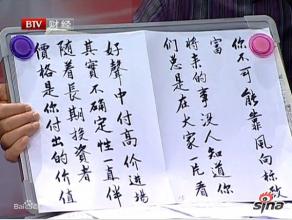 BTV 财经
你不可能靠風向标致
富
將来的事没人知道你
们总是在大家一片看
好聲中付高价進場
其實不确定性一直伴
隨着長期投資者
價格是你付出的价值
sina